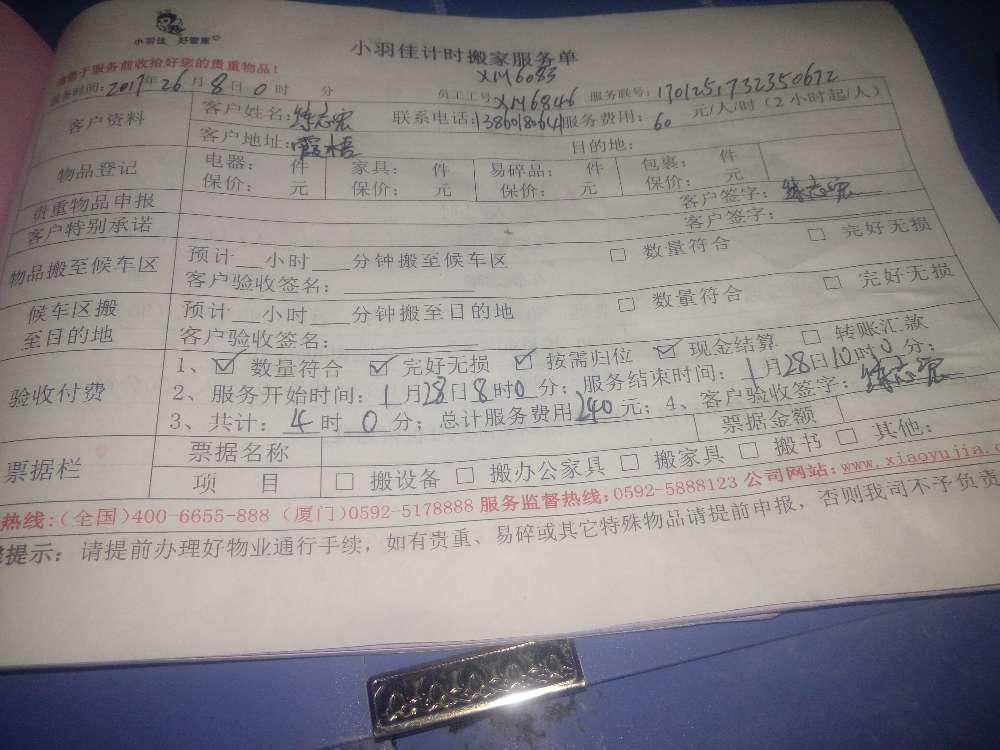 小羽佳 好管家
小羽佳计时搬家服务单
XM6083
请您于服务前收拾好您的贵重物品！
服务时间：2017年26月8日0时 分 员工工号：XM6846 服务联号：1701251732350672
客户资料 客户姓名：练志宏 联系电话：13860180641 服务费用：60 元/人/时（2小时起/人）
客户地址：霞梧 目的地：
物品登记 电器： 件 家具： 件 易碎品： 件 包裹： 件
保价： 元 保价： 元 保价： 元 保价： 元
贵重物品申报 客户签字：练志宏
客户特别承诺 客户签字：
物品搬至候车区 预计__小时___分钟搬至候车区 □ 数量符合 □ 完好无损
客户验收签名：
候车区搬至目的地 预计__小时___分钟搬至目的地 □ 数量符合 □ 完好无损
客户验收签名：
验收付费 1、☑ 数量符合 ☑ 完好无损 ☑ 按需归位 ☑ 现金结算 □ 转账汇款
2、服务开始时间：1月28日8时0分；服务结束时间：1月28日10时0分；
3、共计：4时0分；总计服务费用240元；4、客户验收签字：练志宏
票据栏 票据名称 票据金额
项 目 □ 搬设备 □ 搬办公家具 □ 搬家具 □ 搬书 □ 其他：
热线：（全国）400-6655-888（厦门）0592-5178888 服务监督热线：0592-5888123 公司网站：www.xiaoyujia.c
提示：请提前办理好物业通行手续，如有贵重、易碎或其它特殊物品请提前申报，否则我司不予负责